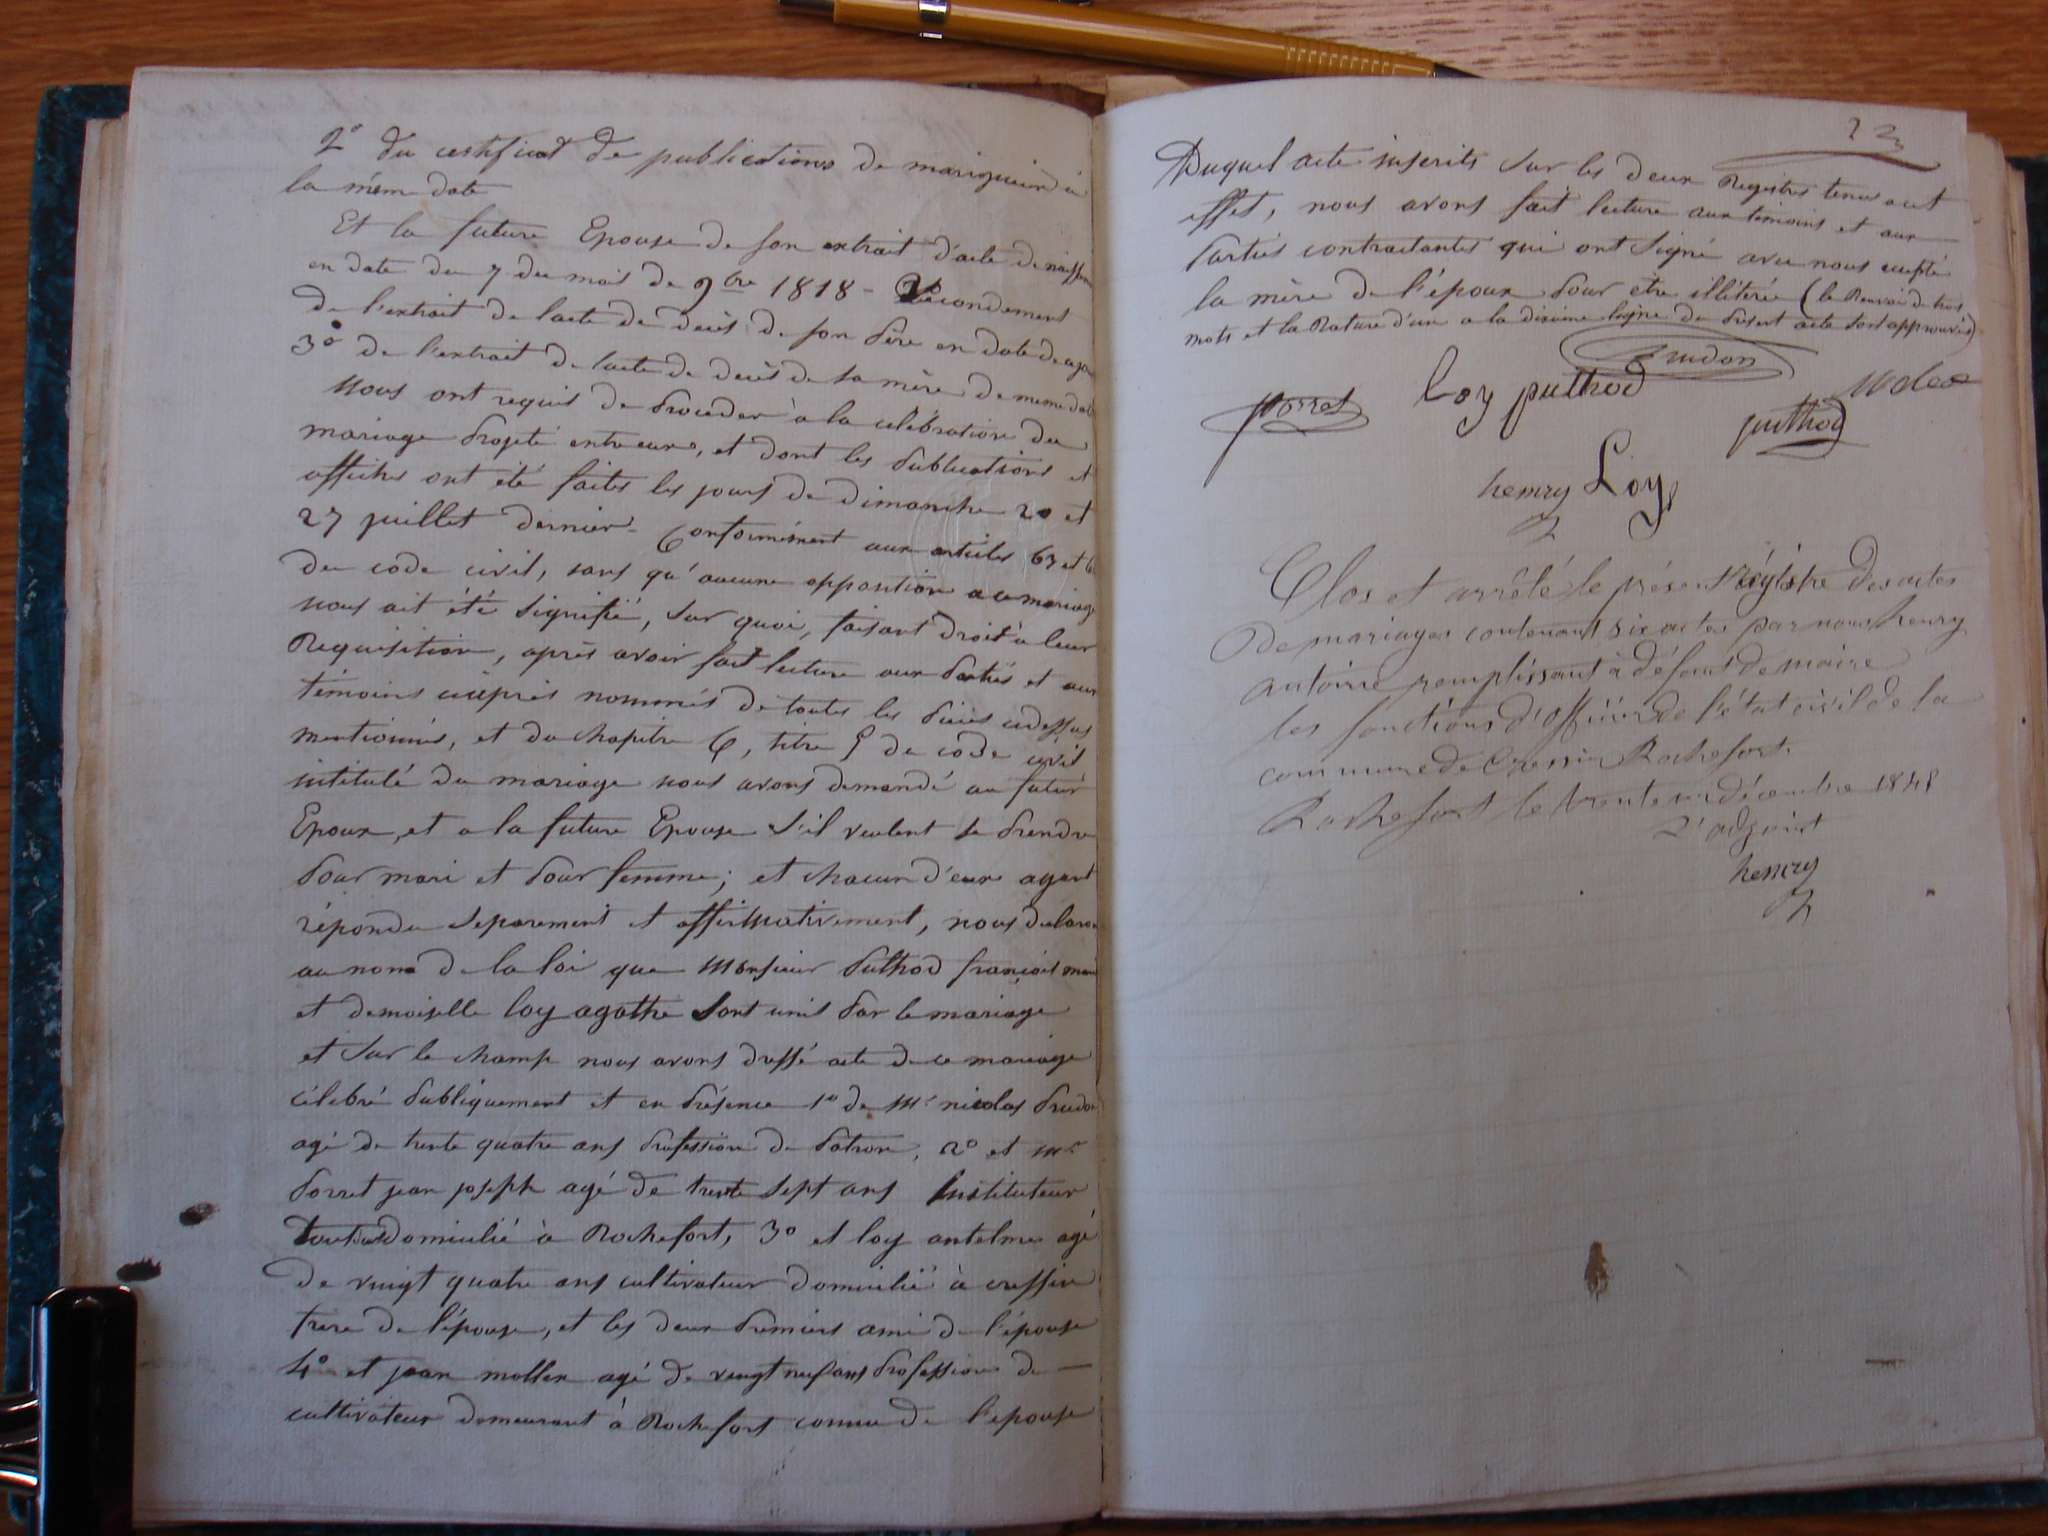 2° du certificat de publications de mariqueur à
la même date
Et la future Epouse de son extrait d'acte de naissan
en date du 7 du mois de 9bre 1818 - Secondement
de l'extrait de l'acte de decès de son père en date de
3° de l'extrait de l'acte de decès de sa mère de meme dat
Nous ont requis de proceder à la célébration du
mariage projeté entre eux, et dont les publications et
affiches ont été faites les jours de dimanche 20 et
27 juillet dernier - Conformément aux articles 63 et 6
du code civil, sans qu'aucune opposition a ce mariage
nous ait été signifié, sur quoi, faisant droit à leur
Requisition, après avoir fait lecture aux parties et aux
témoins ciaprès nommés de toutes les pièces cidessus
mentionnés, et du chapitre 6, titre 5 du code civil
intitulé du mariage nous avons demandé au futur
Epoux, et a la future Epouse s'il veulent se prendre
pour mari et pour femme; et chacun d'eux ayant
répondu separement et affirmativement, nous déclaron
au nom de la loi que Monsieur puthod françois mari
et demoiselle loy agathe sont unis par le mariage
et sur le champ nous avons dressé acte de ce mariage
célébré publiquement et en présence 1° de Mr nicolas prudon
agé de trente quatre ans profession de patron, 2° et mr
porret jean joseph agé de trente sept ans Instituteur
domicilié à Rochefort, 3° et loy antelme agé
de vingt quatre ans cultivateur domicilié à cressin
frere de l'épouse, et les deux premiers ami de l'épouse
4° et jean mollex agé de vingt neuf ans profession de —
cultivateur demeurant à Rochefort connu de l'epouse
23
Duquel acte inscrits sur les deux Registres tenu a cet
effet, nous avons fait lecture aux témoins et aux
parties contractantes qui ont signé avec nous excepté
la mère de l'époux pour etre illitérée (le Renvoi de trois
mots et la Rature d'un a la dixieme ligne du présent acte sont approuvés)
Prudon
porret loy puthod molex
puthod
henry Loy
Clos et arrêté le présent Régistre des actes
de mariages contenant six actes par nous henry
antoine remplissant à défaut de maire
les fonctions d'officier de l'état civil de la
commune de Cressin Rochefort.
Rochefort le trente un décembre 1848
L'adjoint
henry